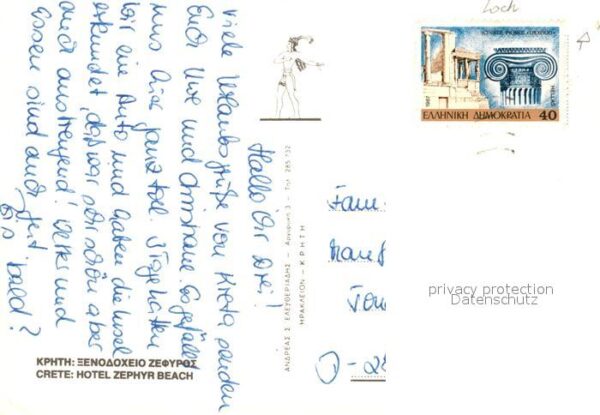 Loch
ΙΩΝΙΚΟΣ ΡΥΘΜΟΣ
1987
HELLAS
ΕΛΛΗΝΙΚΗ ΔΗΜΟΚΡΑΤΙΑ 40
Hallo Ihr drei!
Viele Urlaubsgrüße von Kreta senden
Euch Uwe und Christiane. Es gefällt
uns hier ganz toll. 3 Tage hatten
wir ein Auto und haben die Insel
erkundet, das war sehr schön aber
auch anstrengend! Wetter und
Essen sind auch
Bis bald?
ΑΝΔΡΕΑΣ Σ. ΕΛΕΥΘΕΡΙΑΔΗΣ — Αργυρακη 3 - Τηλ. 285-732
ΗΡΑΚΛΕΙΟΝ - ΚΡΗΤΗ
Fam.
D-28
privacy protection
Datenschutz
ΚΡΗΤΗ: ΞΕΝΟΔΟΧΕΙΟ ΖΕΦΥΡΟΣ
CRETE: HOTEL ZEPHYR BEACH